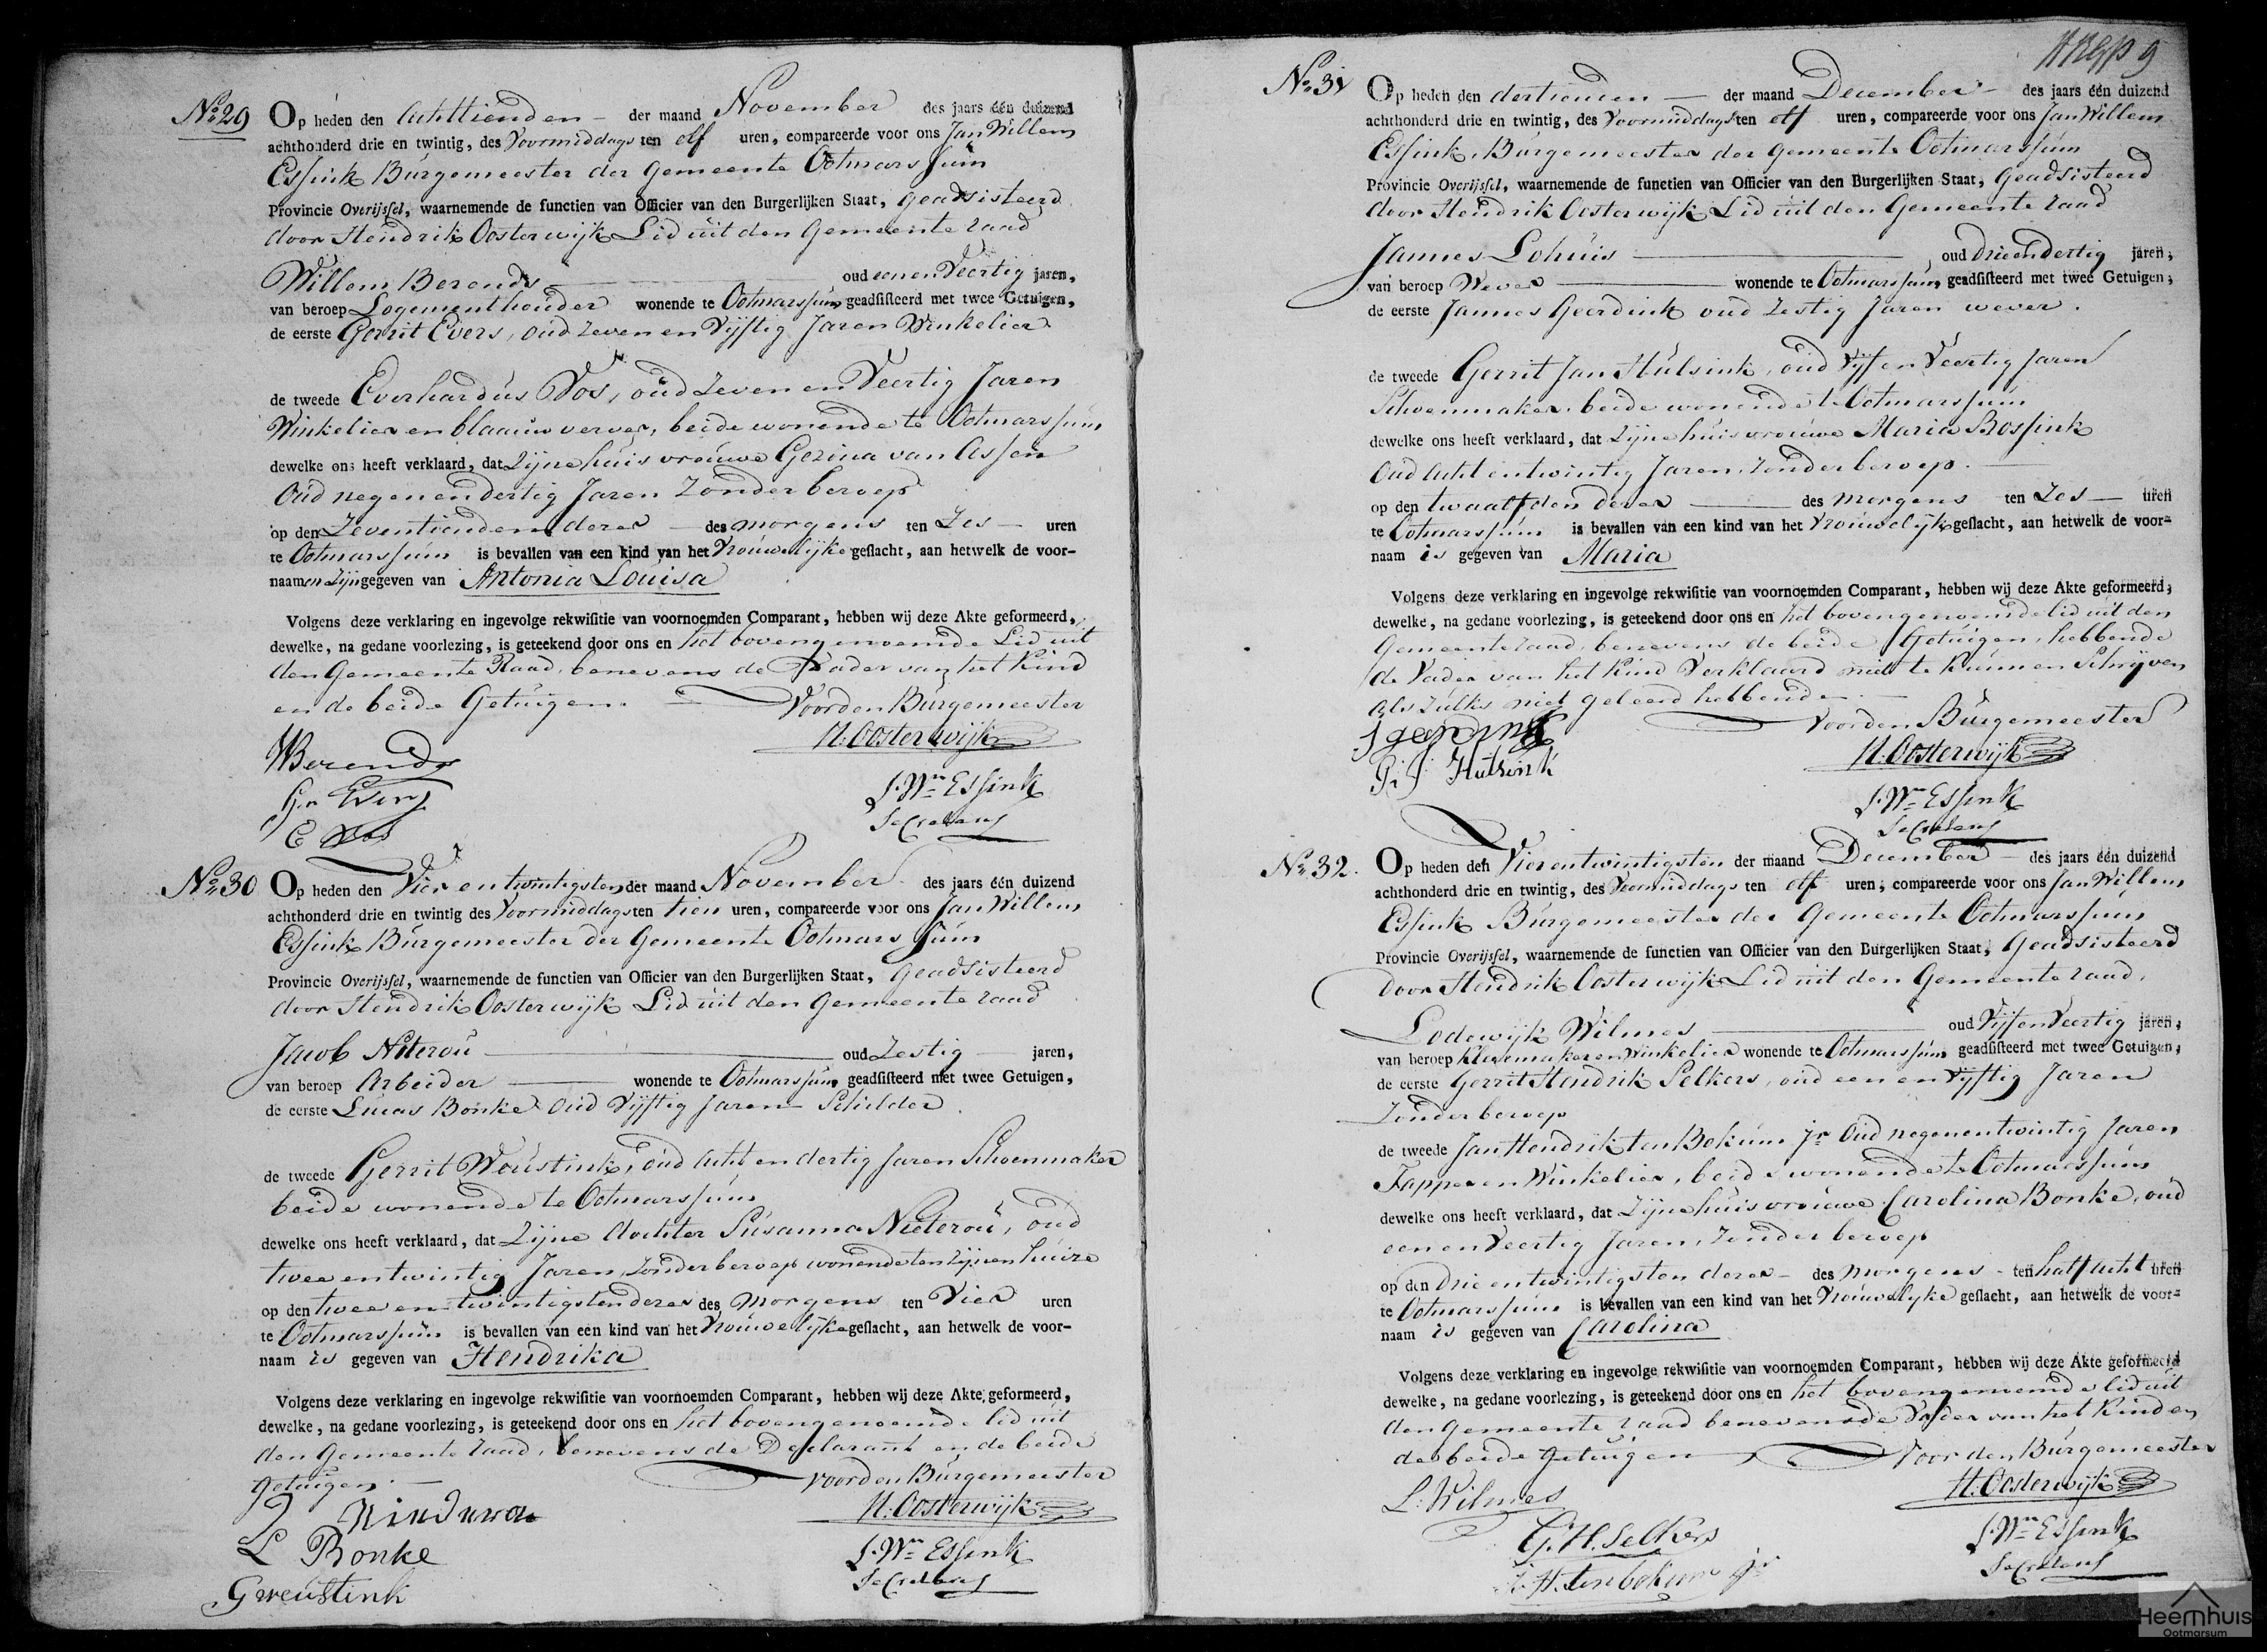 No 29 Op heden den Achttienden - der maand November des jaars één duizend
achthonderd drie en twintig, des Voormiddags ten elf uren, compareerde voor ons Jan Willem
Essink Burgemeester der Gemeente Ootmarssum
Provincie Overijssel, waarnemende de functien van Officier van den Burgerlijken Staat, Geadsisteerd
door Hendrik Oosterwijk Lid uit den Gemeente raad
Willem Berends oud eenen Veertig jaren,
van beroep Logementhouder wonende te Ootmarssum, geadsisteerd met twee Getuigen,
de eerste Gerrit Evers, oud Zeven en Vijftig Jaren Winkelier
de tweede Everhardus Vos, oud Zeven en Veertig Jaren
Winkelier en blaauwverver, beide wonende te Ootmarssum
dewelke ons heeft verklaard, dat Zijne huisvrouwe Gezina van Assen
Oud negenendertig Jaren Zonder beroep
op den Zeventienden dezer - des morgens ten Zes - uren
te Ootmarssum is bevallen van een kind van het Vrouwelijke geslacht, aan hetwelk de voor-
naamen Zijn gegeven van Antonia Louisa
Volgens deze verklaring en ingevolge rekwisitie van voornoemden Comparant, hebben wij deze Akte geformeerd,
dewelke, na gedane voorlezing, is geteekend door ons en het bovengenoemde Lid uit
den Gemeente Raad, benevens de Vader van het Kind
en de beide Getuigen. - Voor den Burgemeester
H. Oosterwijk
WBerends
Gr Evers
E Vos
J. Wm Essink
Secretaris
No 30 Op heden den Vier en twintigsten der maand November des jaars één duizend
achthonderd drie en twintig des Voormiddags ten tien uren, compareerde voor ons Jan Willem
Essink Burgemeester der Gemeente Ootmarssum
Provincie Overijssel, waarnemende de functien van Officier van den Burgerlijken Staat, Geadsisteerd
door Hendrik Oosterwijk Lid uit den Gemeente raad
Jacob Niterou oud Zestig jaren,
van beroep Arbeider wonende te Ootmarssum geadsisteerd met twee Getuigen,
de eerste Lucas Bonke Oud Vijftig Jaren Schilder
de tweede Gerrit Woustink, oud Acht en dertig Jaren Schoenmaker
beide wonende te Ootmarssum
dewelke ons heeft verklaard, dat Zijne dochter Susanna Nieterou, oud
twee en twintig Jaren, Zonder beroep wonende ten Zijnen huize
op den twee en twintigsten dezer des morgens ten Vier uren
te Ootmarssum is bevallen van een kind van het Vrouwelijke geslacht, aan hetwelk de voor-
naam is gegeven van Hendrika
Volgens deze verklaring en ingevolge rekwisitie van voornoemden Comparant, hebben wij deze Akte geformeerd,
dewelke, na gedane voorlezing, is geteekend door ons en het bovengenoemde lid uit
den Gemeente raad, benevens de Declarant en de beide
Getuigen. - voor den Burgemeester
H. Oosterwijk
L Bonke
Greustink
J. Wm Essink
Secretaris
No 31 Op heden den dertienen - der maand December - des jaars één duizend
achthonderd drie en twintig, des Voormiddags ten elf uren, compareerde voor ons Jan Willem
Essink, Burgemeester der Gemeente Ootmarssum
Provincie Overijssel, waarnemende de functien van Officier van den Burgerlijken Staat, Geadsisteerd
door Hendrik Oosterwijk Lid uit den Gemeente raad
Jannes Lohuis oud drieendertig jaren,
van beroep Wever wonende te Ootmarssum, geadsisteerd met twee Getuigen,
de eerste Jannes Geerdink oud Zestig Jaren wever.
de tweede Gerrit Jan Hulsink, oud Vijf en Veertig Jaren
Schoenmaker, beide wonende te Ootmarssum
dewelke ons heeft verklaard, dat Zijne huisvrouwe Maria Bossink
Oud Acht entwintig Jaren, Zonder beroep. -
op den twaalfden dezer des morgens ten Zes - uren
te Ootmarssum is bevallen van een kind van het Vrouwelijk geslacht, aan hetwelk de voor-
naam is gegeven van Maria
Volgens deze verklaring en ingevolge rekwisitie van voornoemden Comparant, hebben wij deze Akte geformeerd,
dewelke, na gedane voorlezing, is geteekend door ons en het bovengenoemde lid uit den
Gemeente raad, benevens de beide Getuigen, hebbende
de Vader van het Kind Verklaard niet te Kunnen Schrijven
als Zulks niet geleerd hebbende -
Voor den Burgemeester
H. Oosterwijk
J gerdink
G: J: Hulsink
J. Wm Essink
Secretaris
No 32. Op heden den Vierentwintigsten der maand December - des jaars één duizend
achthonderd drie en twintig, des Voormiddags ten elf uren, compareerde voor ons Jan Willem
Essink Burgemeester der Gemeente Ootmarssum
Provincie Overijssel, waarnemende de functien van Officier van den Burgerlijken Staat, Geadsisteerd
Door Hendrik Oosterwijk Lid uit den Gemeente raad,
Lodewijk Wilmes oud Vijf en Veertig jaren,
van beroep Kleremaker en Winkelier wonende te Ootmarssum geadsisteerd met twee Getuigen,
de eerste Gerrit Hendrik Selkers, oud een en Vijftig Jaren
Zonder beroep
de tweede Jan Hendrik ten Bokum Jr Oud negenentwintig Jaren
Tapper en Winkelier, beide wonende te Ootmarssum
dewelke ons heeft verklaard, dat Zijne huisvrouwe Carolina Bonke, oud
een en Veertig Jaren, Zonder beroep
op den Drie entwintigsten dezer - des morgens - ten half acht uren
te Ootmarssum is bevallen van een kind van het Vrouwelyke geslacht, aan hetwelk de voor-
naam is gegeven van Carolina
Volgens deze verklaring en ingevolge rekwisitie van voornoemden Comparant, hebben wij deze Akte geformeerd
dewelke, na gedane voorlezing, is geteekend door ons en het bovengenoemde lid uit
den Gemeente raad benevens de Vader van het Kind en
de beide Getuigen Voor den Burgemeester
H. Oosterwijk
L: Wilmes
G. H. Selkers
J. H. tenbokum Jr
J. Wm Essink
Secretaris
Heemhuis
Ootmarsum